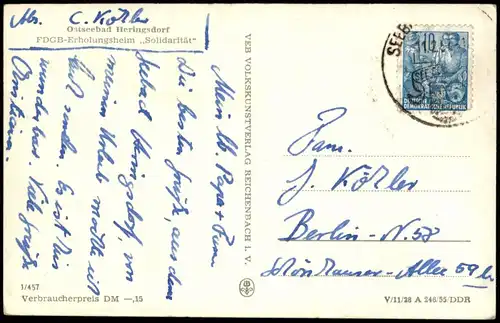 Abs. C. Köhler
Ostseebad Heringsdorf
FDGB-Erholungsheim „Solidarität“
Mein lb. Papa +
Die besten Grüße, aus dem
Seebad Heringsdorf, von
meinem Urlaub möchte ich
Euch senden. Es ist hier
wunderbar. Viele Grüße
Christiana.
1/457
Verbraucherpreis DM —,15
VEB VOLKSKUNSTVERLAG REICHENBACH i. V.
SEEB
DEUTSCHE
DEMOKRATISCHE REPUBLIK
Fam.
J. Köhler
Berlin-N.58
Schönhauser-Allee 59b
V/11/28 A 246/55/DDR